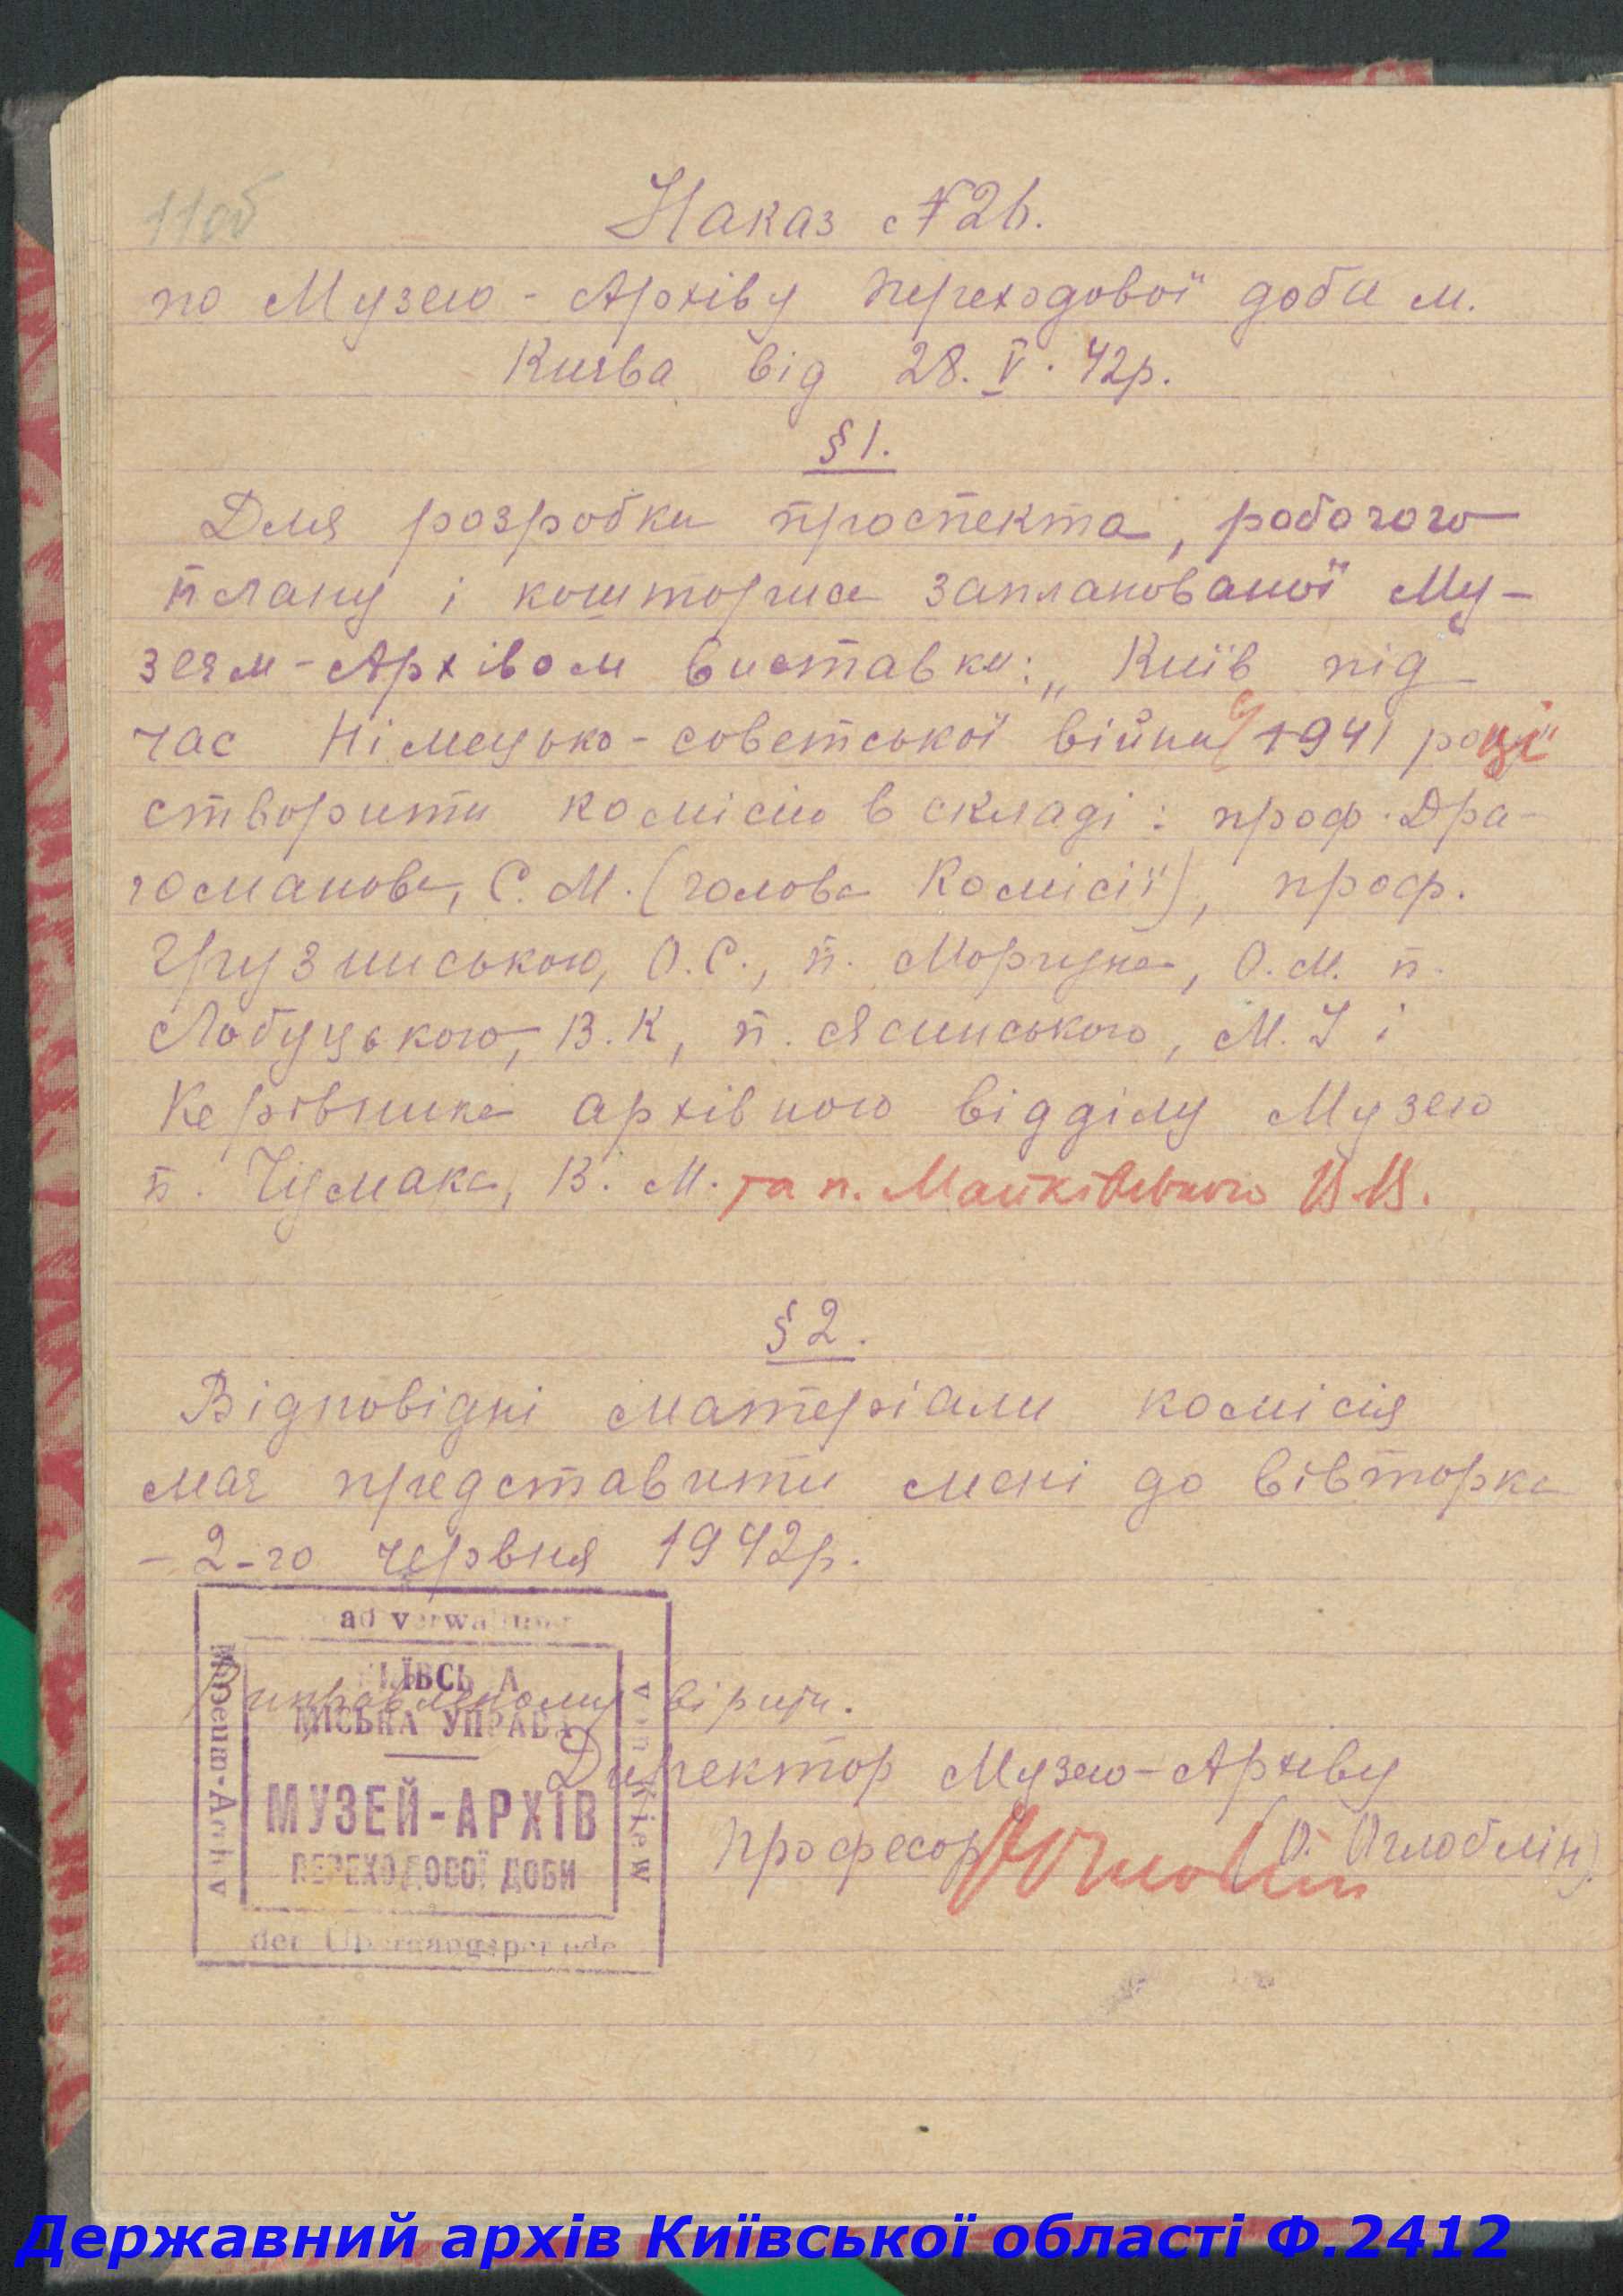 11об
Наказ №26.
по Музею-Архіву Переходової доби м.
Києва від 28.V.42р.
§1.
Для розробки проспекта, робочого
плану і кошториса запланованої Му-
зеєм-Архівом виставки: „Київ під
час Німецько-советської війни у 1941 році"
створити комісію в складі: проф. Дра-
гоманова, С.М. (голова Комісії), проф.
Грузинського, О.С., п. Моргуна, О.М. п.
Лобуцького, В.К, п. Ясинського, М.І і
Керівника архівного відділу Музею
п. Чумака, В.М. та п. Маньківського Б.В.
§2.
Відповідні матеріали комісія
має представити мені до вівторка
- 2-го червня 1942р.
Виправленому вірити.
Директор Музею-Архіву
Професор (О. Оглоблін)
Stadtverwaltung
von Kiew
Museum-Archiv
der Übergangsperiode
КИЇВСЬКА
МІСЬКА УПРАВА
МУЗЕЙ-АРХІВ
ПЕРЕХОДОВОЇ ДОБИ
Державний архів Київської області Ф.2412